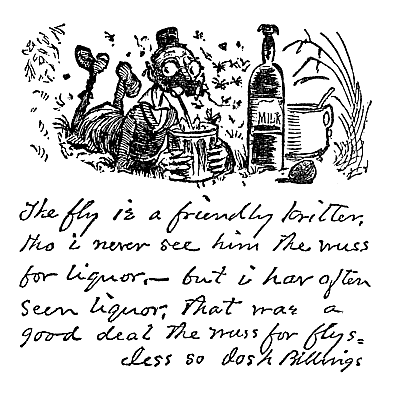 MILK
The fly iz a friendly kritter,
tho i never see him the wuss
for liquor,— but i hav often
seen liquor, that waz a
good deal the wuss for flys=
Jess so Josh Billings